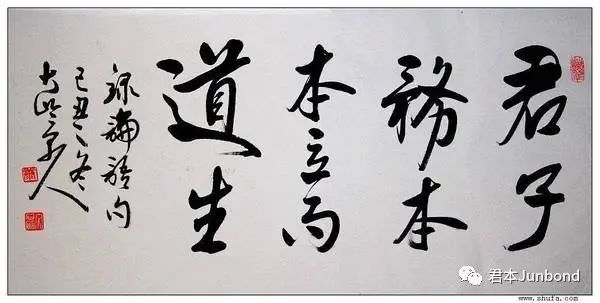 君子
務本
本立而
道生
録論語句
己丑之冬
君本Junbond
www.shufa.com